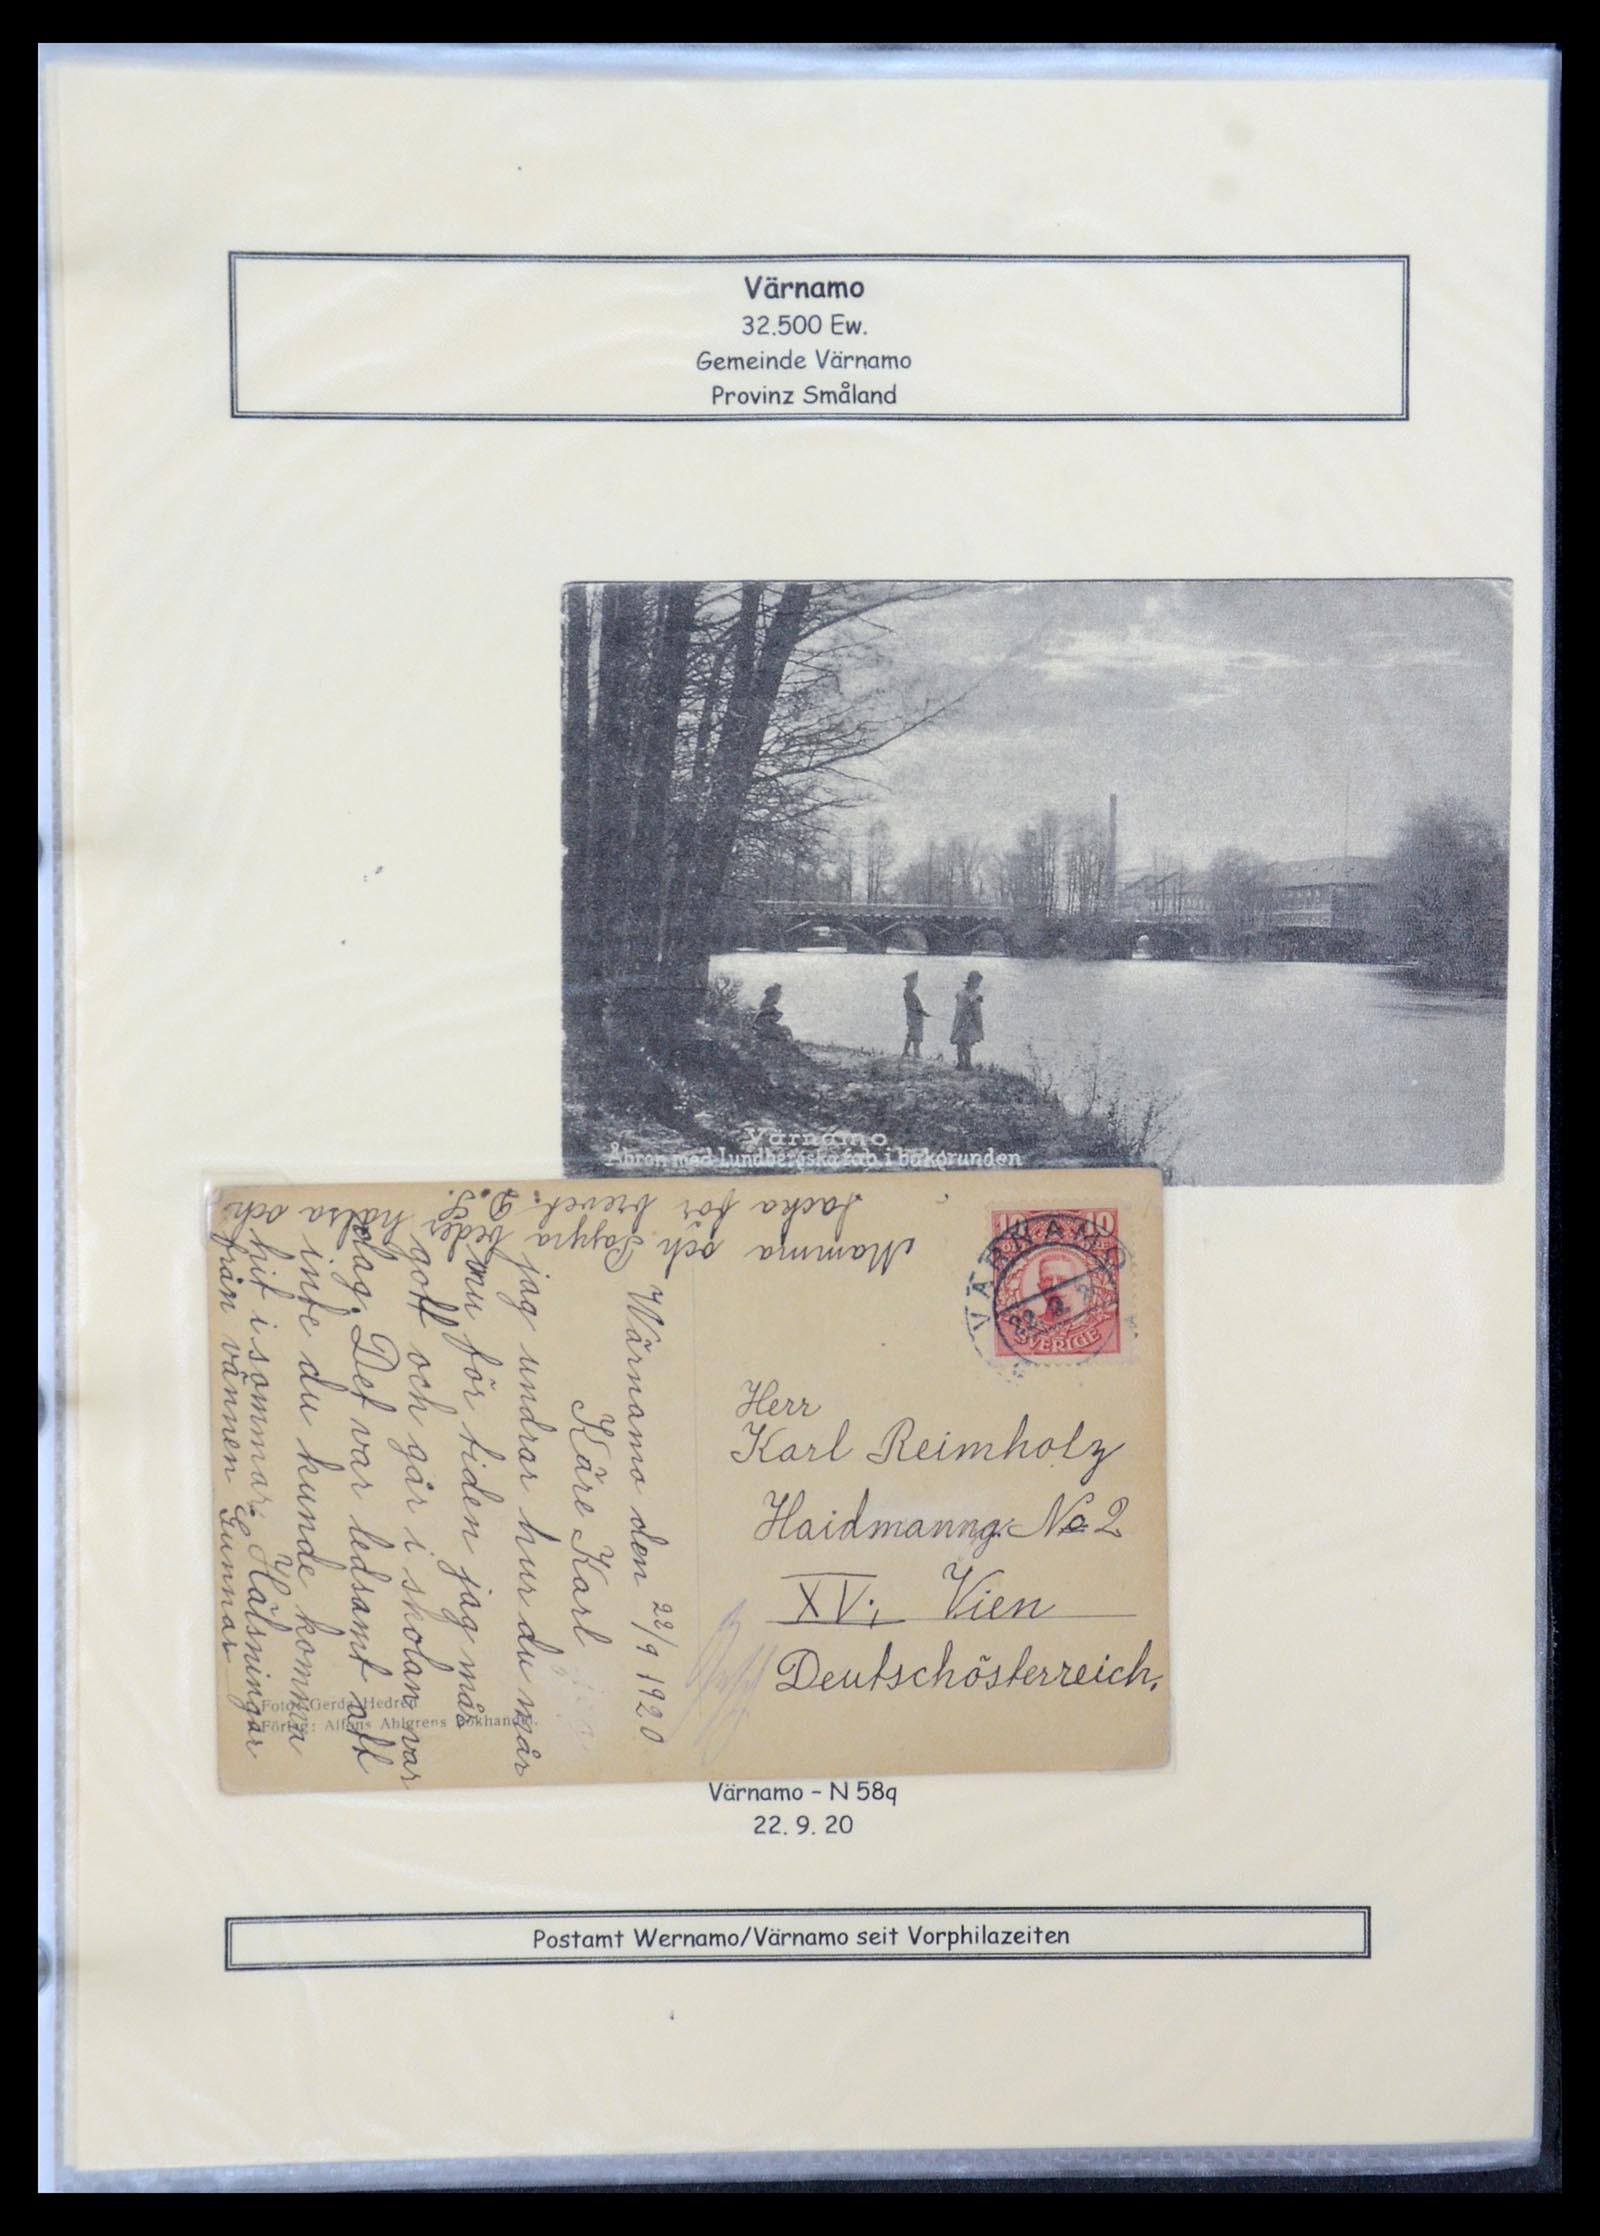 Värnamo
32.500 Ew.
Gemeinde Värnamo
Provinz Småland
Värnamo
Åbron med Lundbergska fab. i bakgrunden
Mamma och Pappa beder hälsa och
tacka för brevet. D.S.
Wärnamo den 22/9 1920
Käre Karl
jag undrar hur du mår
nu för tiden jag mår
gott och går i skolan var
dag. Det var ledsamt att
inte du kunde komma
hit i sommar. Hälsningar
från vännen Gunnar
Foto: Gerda Hedrén
Förlag: Alfons Ahlgrens Bokhandel.
10 10
SVERIGE
VÄRNAMO
22. 9. 20
Herr
Karl Reimholz
Haidmanng. No 2
XV; Vien
Deutschösterreich.
Värnamo - N 58q
22. 9. 20
Postamt Wernamo/Värnamo seit Vorphilazeiten